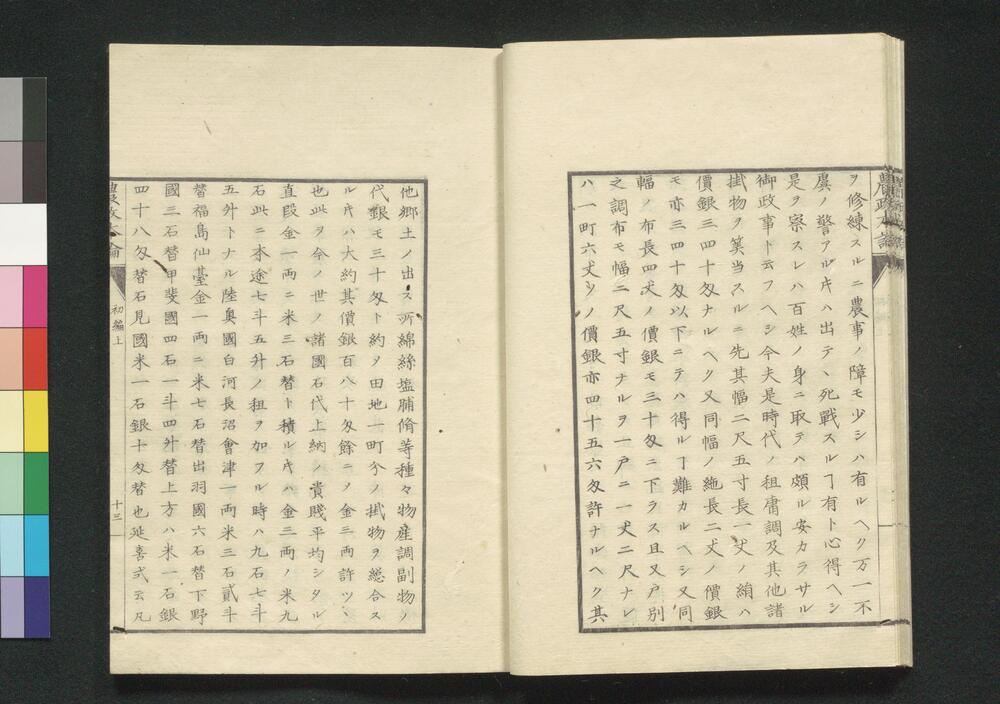 ヲ修練スルニ農事ノ障モ少シハ有ルヘク万一不
虞ノ警アル𪜈ハ出テヽ死戰スルヿ有ト心得ヘシ
是ヲ察スレハ百姓ノ身ニ取テハ頗ル安カラサル
御政事ト云フヘシ今夫是時代ノ租庸調及其他諸
掛物ヲ筭当スルニ先其幅二尺五寸長一丈ノ絹ハ
價銀三四十匁ナルヘク又同幅ノ絁長二丈ノ價銀
モ亦三四十匁以下ニテハ得ルヿ難カルヘシ又同
幅ノ布長四丈ノ價銀モ三十匁ニ下ラス且又戸別
之調布モ幅二尺五寸ナルヲ一戸ニ一丈二尺ナレ
ハ一町六丈ツノ價銀亦四十五六匁許ナルヘク其
他郷土ノ出ス所綿絲塩脯脩等種々物産調副物ノ
代銀モ三十匁ト約ヲ田地一町分ノ掛物ヲ總合ス
ルキハ大約其價銀百八十匁餘ニノ金三両許ツヽ
也此ヲ今ノ世ノ諸國石代上納ノ貴賤平均シタル
直段金一両ニ米三石替ト積ルキハ金三両ノ米九
石此ニ本途七斗五升ノ租ヲ加フル時ハ九石七斗
五升トナル陸奥國白河長沼會津一両米三石貳斗
替福島仙臺金一両ニ米七石替出羽國六石替下野
國三石替甲斐國四石一斗四升替上方ハ米一石銀
四十八匁替石見國米一石銀十匁替也延喜式云凡
初編上
十三